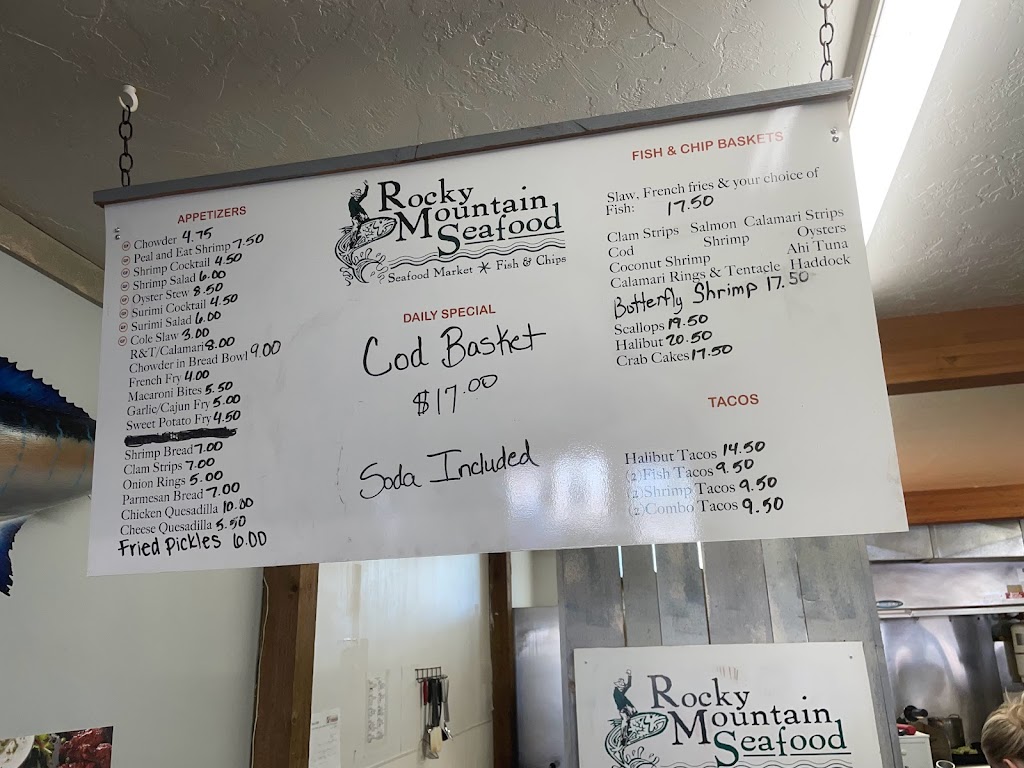 APPETIZERS
Chowder 4.75
Peal and Eat Shrimp 7.50
Shrimp Cocktail 4.50
Shrimp Salad 6.00
Oyster Stew 8.50
Surimi Cocktail 4.50
Surimi Salad 6.00
Cole Slaw 3.00
R&T/Calamari 8.00
Chowder in Bread Bowl 9.00
French Fry 4.00
Macaroni Bites 5.50
Garlic/Cajun Fry 5.00
Sweet Potato Fry 4.50
Shrimp Bread 7.00
Clam Strips 7.00
Onion Rings 5.00
Parmesan Bread 7.00
Chicken Quesadilla 10.00
Cheese Quesadilla 5.50
Fried Pickles 6.00
Rocky
Mountain
Seafood
Seafood Market Fish & Chips
DAILY SPECIAL
Cod Basket
$17.00
Soda Included
FISH & CHIP BASKETS
Slaw, French fries & your choice of
Fish: 17.50
Clam Strips Salmon Calamari Strips
Cod Shrimp Oysters
Coconut Shrimp Ahi Tuna
Calamari Rings & Tentacle Haddock
Butterfly Shrimp 17.50
Scallops 19.50
Halibut 20.50
Crab Cakes 17.50
TACOS
Halibut Tacos 14.50
(2)Fish Tacos 9.50
(2)Shrimp Tacos 9.50
(2)Combo Tacos 9.50
Rocky
Mountain
Seafood